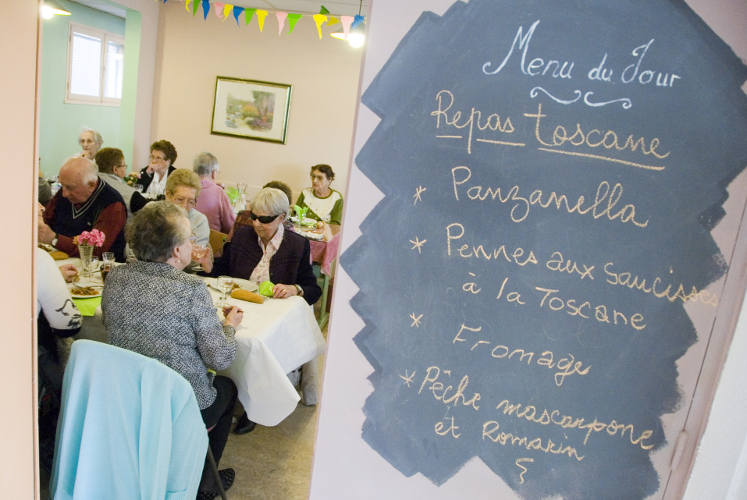 Menu du Jour
Repas toscane
* Panzanella
* Pennes aux Saucisses
à la Toscane
* Fromage
* Pêche mascarpone
et Romarin